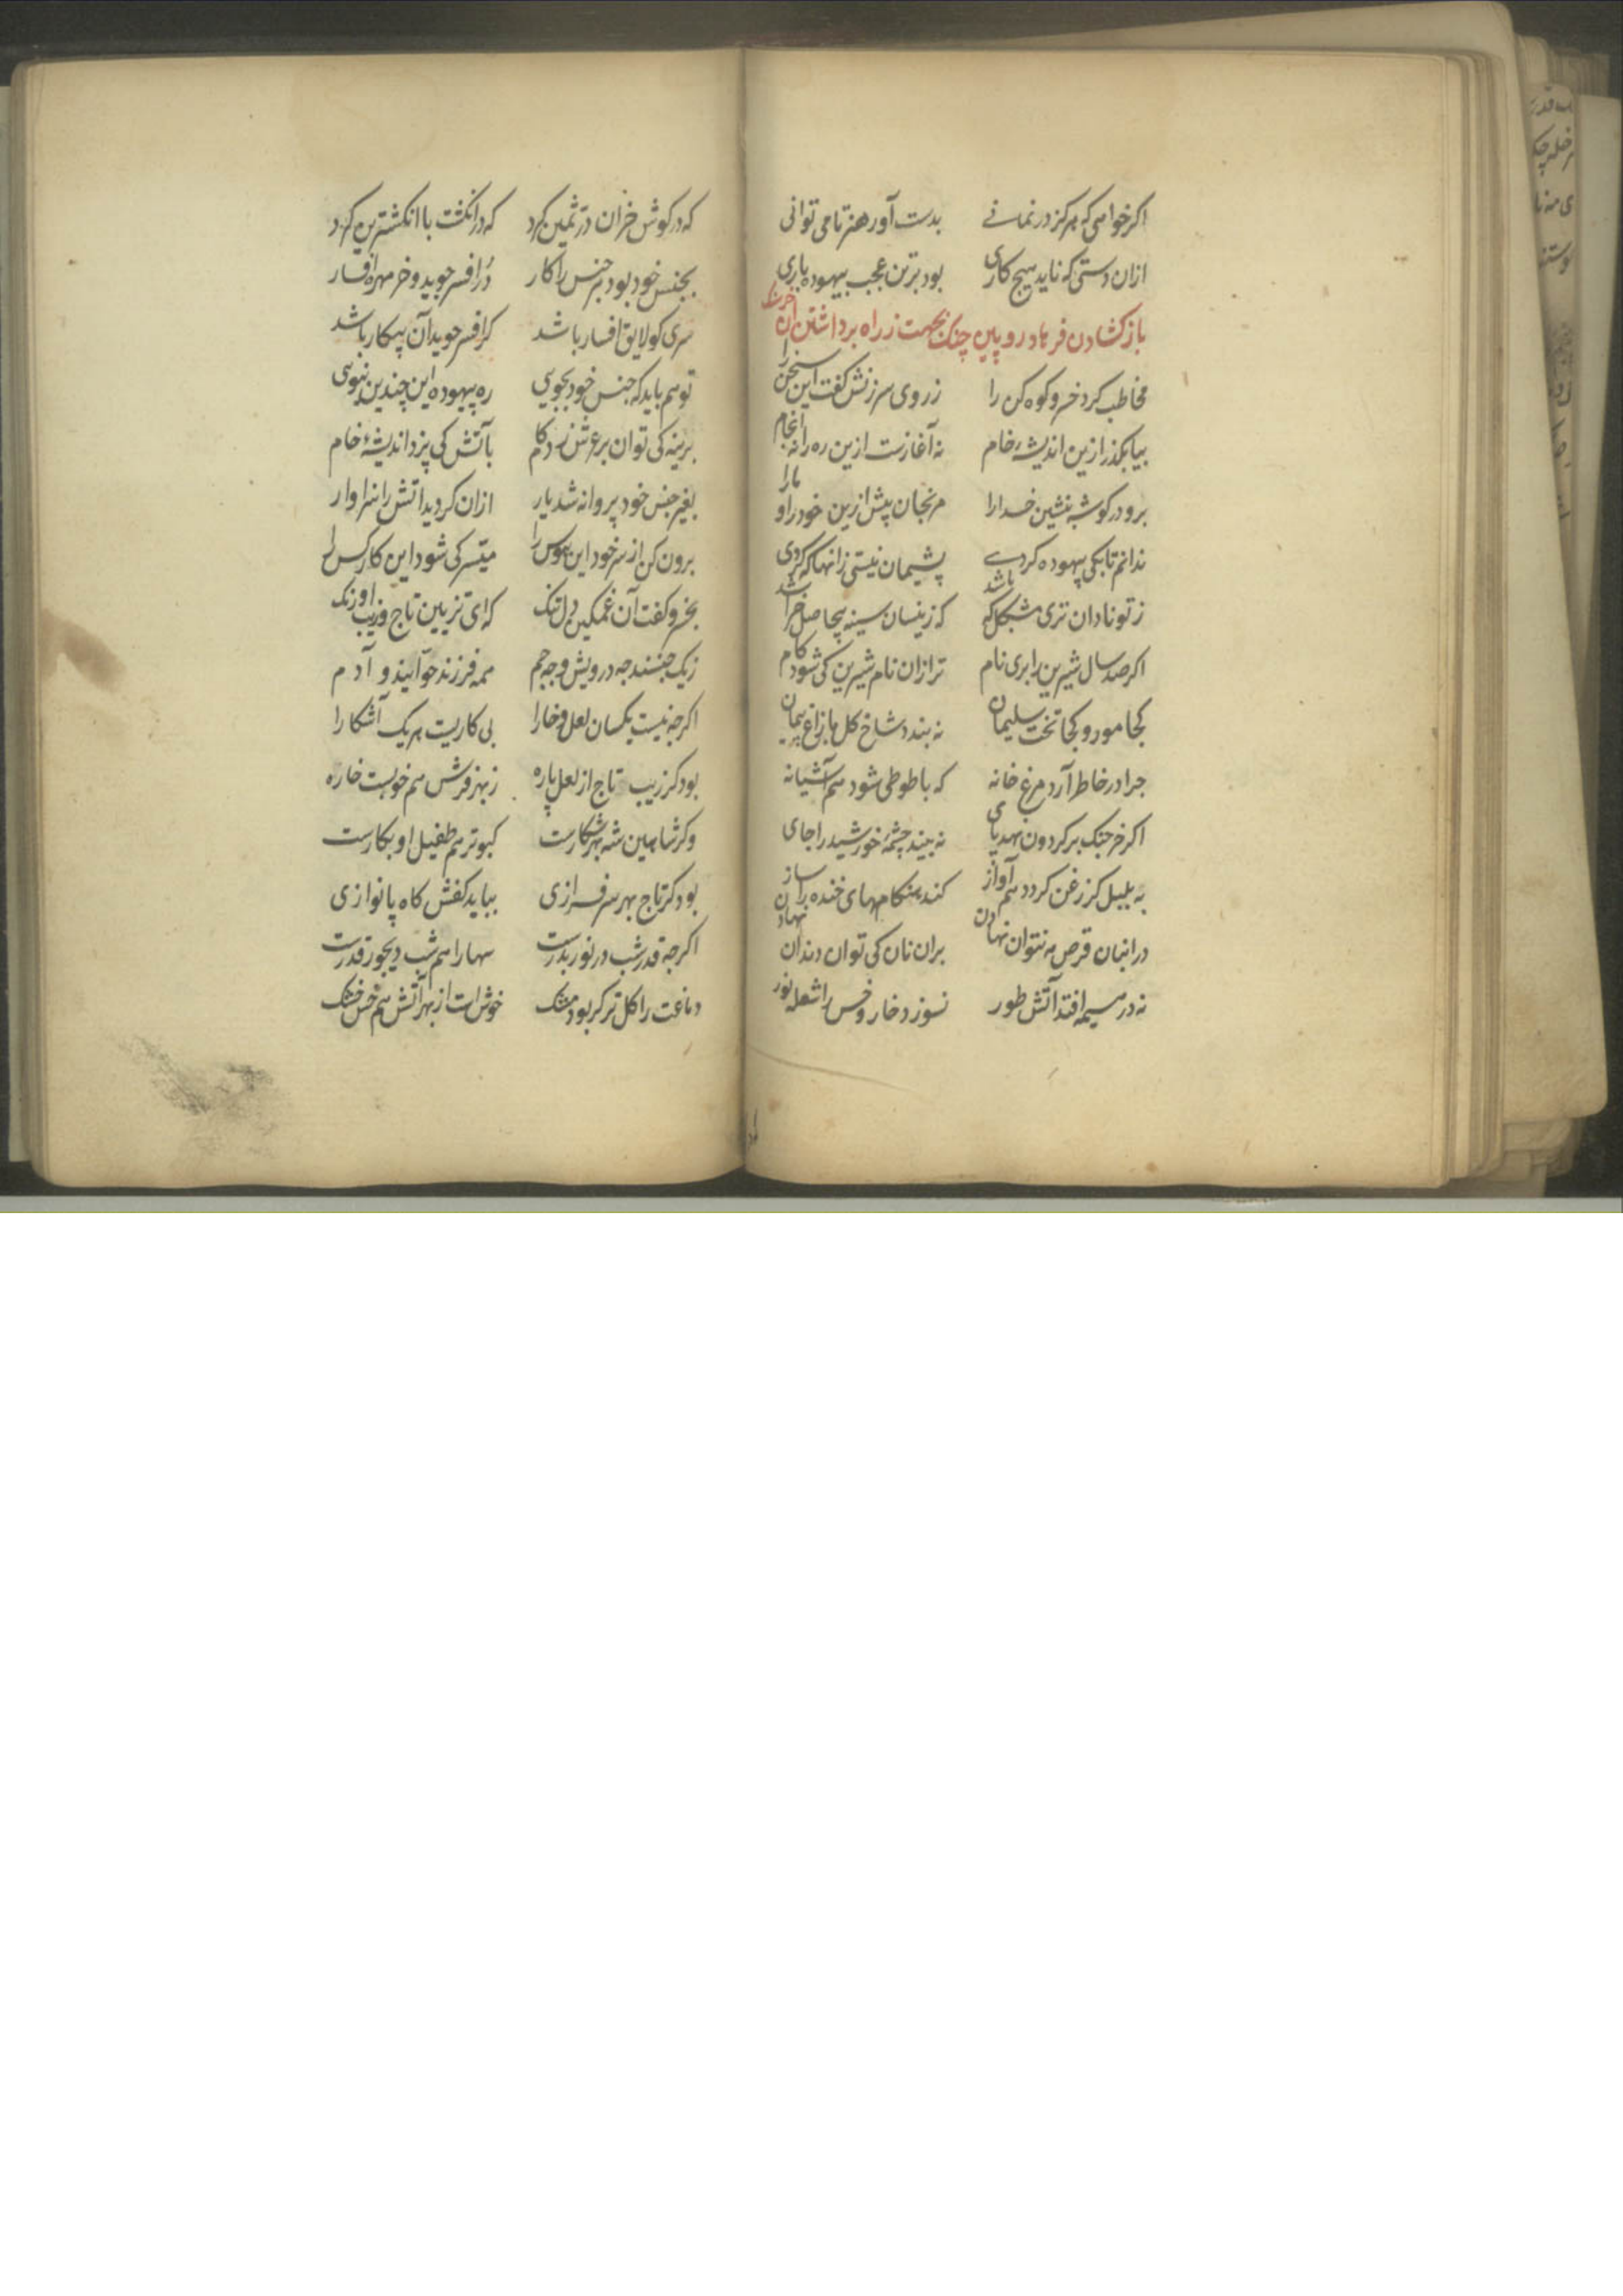 اکر خواهی که هرکز در نمانے بدست آور هنر تا می توانی
ازان دستی که ناید هیچ کاری بود بزتن عجب بیهوده باری
باز کشادن فرهاد رویین چنک بجهت ز راه برداشتن ان
مخاطب کرد خسرو کوه کن را ز روی سرزنش کفت این سخن را
بیا بکذر ازین اندیشهٔ خام نه آغازست ازین ره را نه انجام
برو در کوشه بنشین خدارا مرنجان پیش ازین خود را و مارا
ندانم تا بکی بیهوده کردے پشیمان نیستی زانها که کردی
ز تو نادان تری مشکل که باشد که زینسان سینه بیحاصل خراشد
اکر صد سال شیرین را بری نام ترا زان نام شیرین کی شود کام
کجا مور و کجا تخت سلیمان نه بندد شاخ کل با زاغ پیمان
جرا در خاطر آرد مرغ خانه که با طوطی شود هم آشیانه
اکر خرجنک بر کردون نهد پای نه بیند چشمهٔ خورشید را جای
به بلبل کز زغن کردد هم آواز کند هنکامهای خنده را ساز
در انبان قرص مه نتوان نهادن بران نان کی توان دندان نهادن
نه در هیمه افتد آتش طور نسوزد خار و خس را شعله نور
که در کوش خران در ثمین کرد که در انکشت پا انکشترین کرد
بجنس خود بود هر جنس را کار در افسر جوید و خر مهره افسار
سری کو لایق افسار باشد کر افسر جوید آن بیکار باشد
تو هم باید که جنس خود بجویی ره بیهوده این چندین نپویی
برینه کی توان بر عرش زد کام بآتش کی پزد اندیشهٔ خام
بغیر جنس خود پروانه شد یار ازان کردید اتش را سزاوار
برون کن از سر خود این هوس را میسر کی شود این کار کس را
بخسرو کفت آن غمکین دل تنک که ای تزیین تاج و زیب اورنک
ز یک جنسند جه درویش و جه جم همه فرزند حوّایند و آدم
اکرجه نیست یکسان لعل و خارا پی کاریست هر یک آشکارا
بود کر زیب تاج از لعل پاره ز بهر فرش هم خوبست خاره
وکر شاهین شه بهر شکارست کبوتر هم طفیل او بکارست
بود کر تاج بهر سرفرازی بباید کفش کاه پا نوازی
اکرجه قدر شب در نور بدرست سها را هم شب دیجور قدرست
دماغت را کل تر کر بود مشک خوش است از بهر آتش هم خس خشک